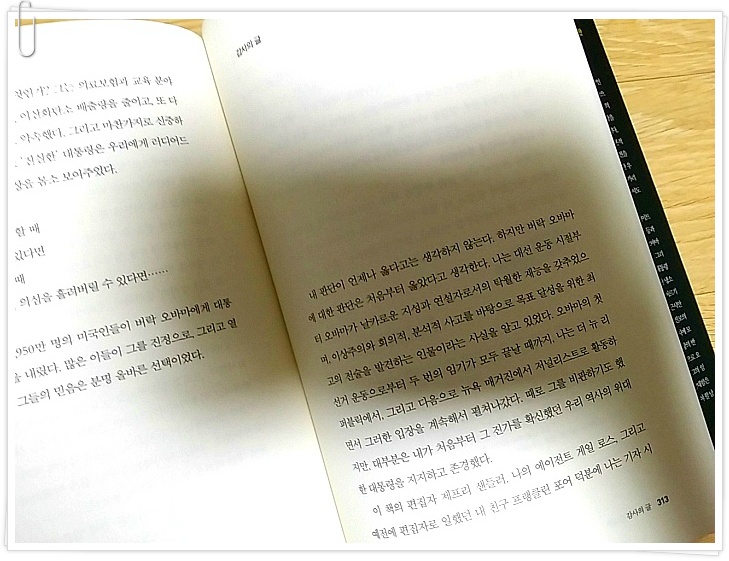 의료보험과 교육 분야
이산화탄소 배출량을 줄이고, 또 다
약속했다. 그리고 마찬가지로 신중하
'진실한' 대통령은 우리에게 러디어드
상을 몸소 보여주었다.
할 때
있다면
때
의심을 흘려버릴 수 있다면……
950만 명의 미국인들이 버락 오바마에게 대통
을 내렸다. 많은 이들이 그를 진정으로, 그리고 열
그들의 믿음은 분명 올바른 선택이었다.
감사의 글
내 판단이 언제나 옳다고는 생각하지 않는다. 하지만 버락 오바마
에 대한 판단은 처음부터 옳았다고 생각한다. 나는 대선 운동 시절부
터 오바마가 날카로운 지성과 연설자로서의 탁월한 재능을 갖추었으
며, 이상주의와 회의적, 분석적 사고를 바탕으로 목표 달성을 위한 최
고의 전술을 발견하는 인물이라는 사실을 알고 있었다. 오바마의 첫
선거 운동으로부터 두 번의 임기가 모두 끝날 때까지, 나는 더 뉴 리
퍼블릭에서, 그리고 다음으로 뉴욕 매거진에서 저널리스트로 활동하
면서 그러한 입장을 계속해서 펼쳐나갔다. 때로 그를 비판하기도 했
지만, 대부분은 내가 처음부터 그 진가를 확신했던 우리 역사의 위대
한 대통령을 지지하고 존경했다.
이 책의 편집자 제프리 샌들러, 나의 에이전트 게일 로스, 그리고
예전에 편집자로 일했던 내 친구 프랭클린 포어 덕분에 나는 기자 시
감사의 글 313